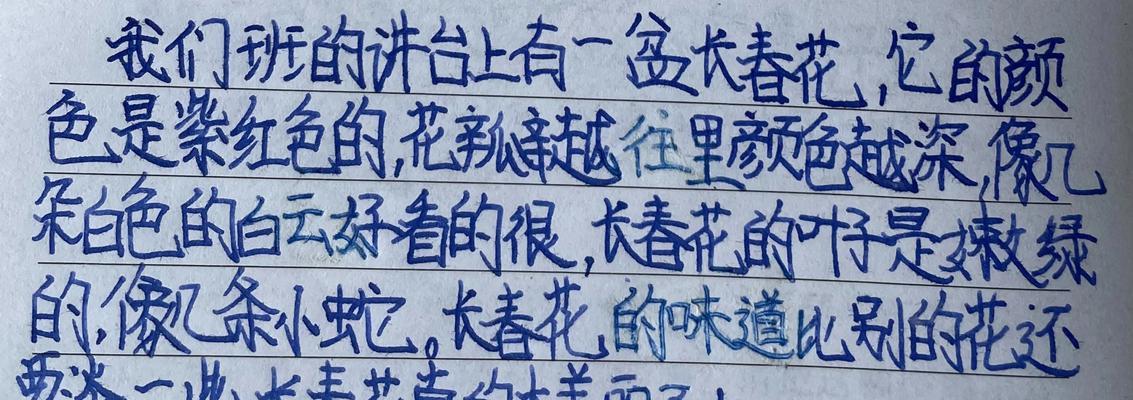 我们班的讲台上有一盆长春花,它的颜
色是紫红色的,花瓣越往里颜色越深,像几
朵白色的白云好看的很,长春花的叶子是嫩绿
的,像几条小蛇。长春花的味道比别的花还
要淡一些,长春花真的太美丽了!